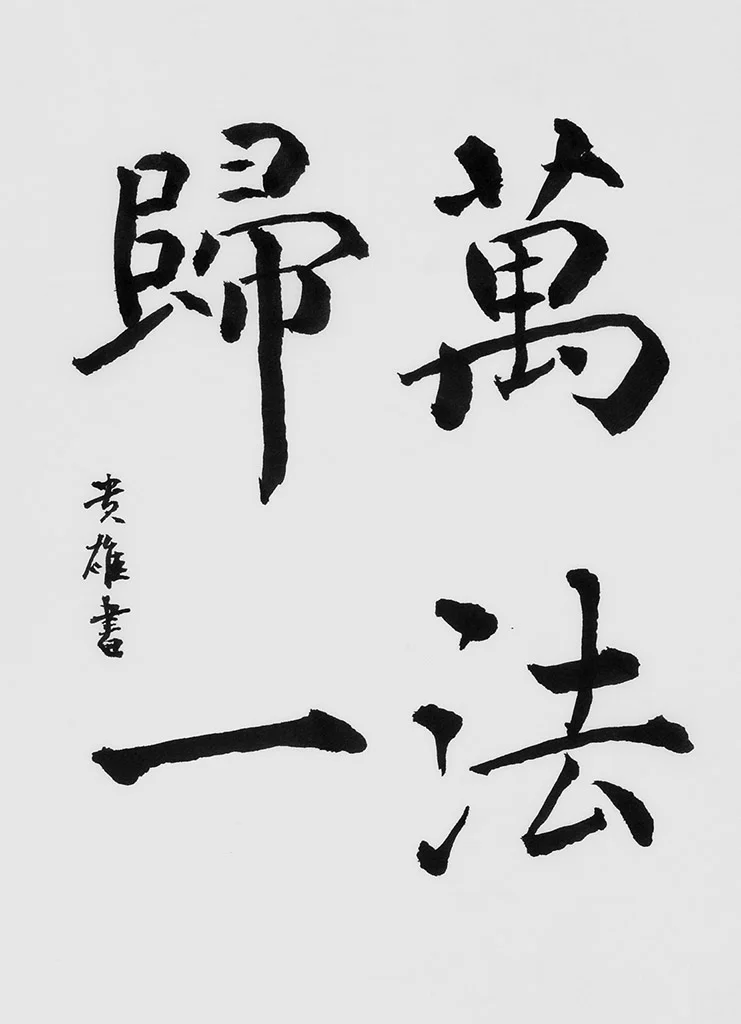 萬法
歸一
貴雄書